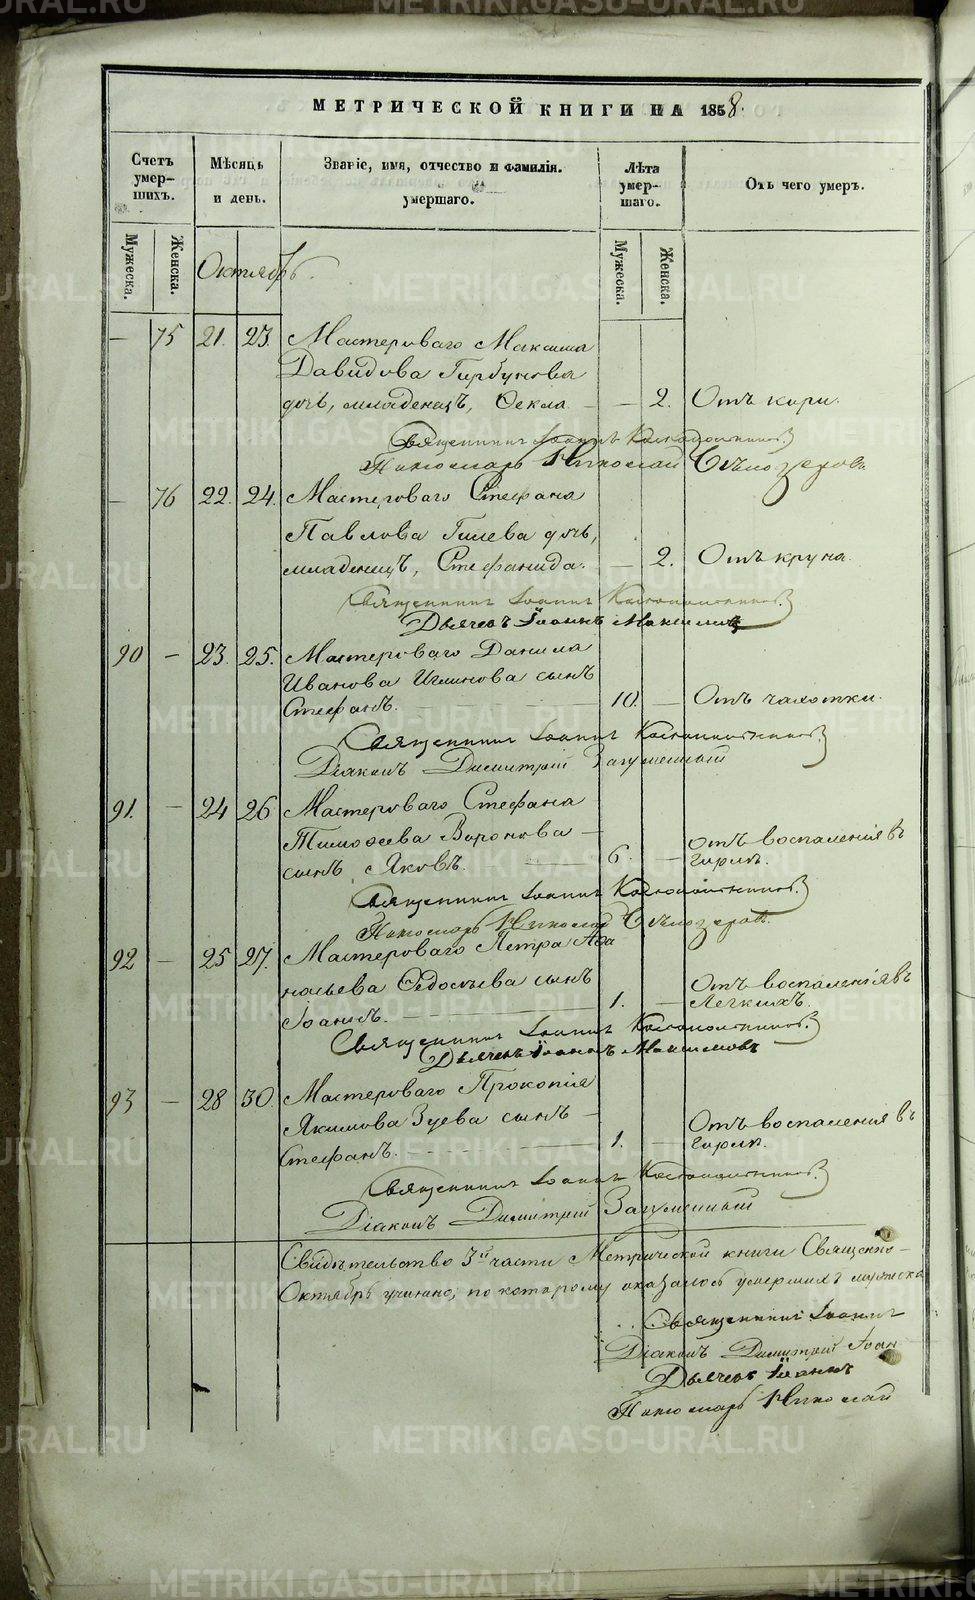 МЕТРИЧЕСКОЙ КНИГИ НА 1858.
Счетъ умер-шихъ.
Мѣсяцъ и день.
Званіе, имя, отчество и фамилія. умершаго.
Лѣта умер-шаго.
Отъ чего умеръ.
Мужеска. Женска.
Мужеска. Женска.
Октябрь.
— 75 21. 23. Мастероваго Максима
Давидова Горбунова
дочь, младенецъ, Ѳекла — — 2. Отъ кори.
Священникъ Іоаннъ
Пономарь Николай
— 76 22. 24. Мастероваго Стефана
Павлова Гилева дочь,
младенецъ, Стефанида. — 2. Отъ крупа.
Священникъ Іоаннъ
Дьячекъ Іоаннъ Максимовъ
90 — 23. 25. Мастероваго Данила
Иванова сынъ
Стефанъ. 10. — Отъ чахотки.
Священникъ Іоаннъ
Діаконъ Димитрій Загуменный
91. — 24 26 Мастероваго Стефана
Тимоѳеева Воронова —
сынъ Яковъ. 6. — отъ воспаленія въ
горлѣ.
Священникъ Іоаннъ
Пономарь Николай
92 — 25 27. Мастероваго Петра Аѳа
насьева Ѳедосѣева сынъ
Іоаннъ. 1. — Отъ воспаленія въ
Легкихъ.
Священникъ Іоаннъ
Дьячекъ Іоаннъ Максимовъ
93 — 28 30. Мастероваго Прокопія
Якимова Зуева сынъ —
Стефанъ. 1. Отъ воспаленія въ
горлѣ.
Священникъ Іоаннъ
Діаконъ Димитрій Загуменный
Свидѣтельство 3й части Метрической книги Священно-
Октябрь учинено, по которому оказалось умершихъ мужеска
Священникъ Іоаннъ
Діаконъ Димитрій Іоан
Дьячекъ Іоаннъ
Пономарь Николай
METRIKI.GASO-URAL.RU